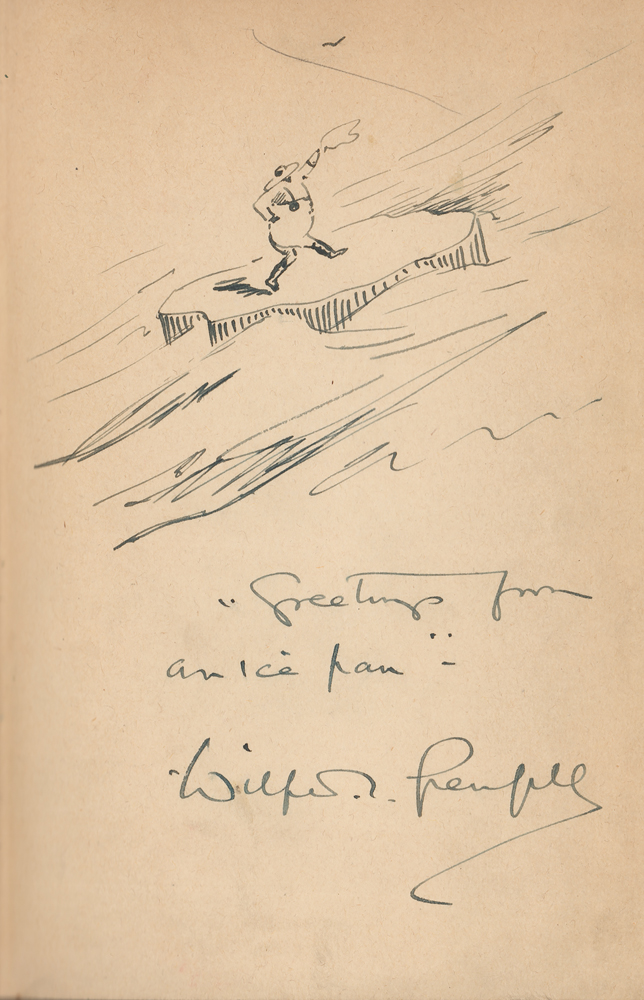 "Greetings from
an ice pan" -
Wilfred T. Grenfell